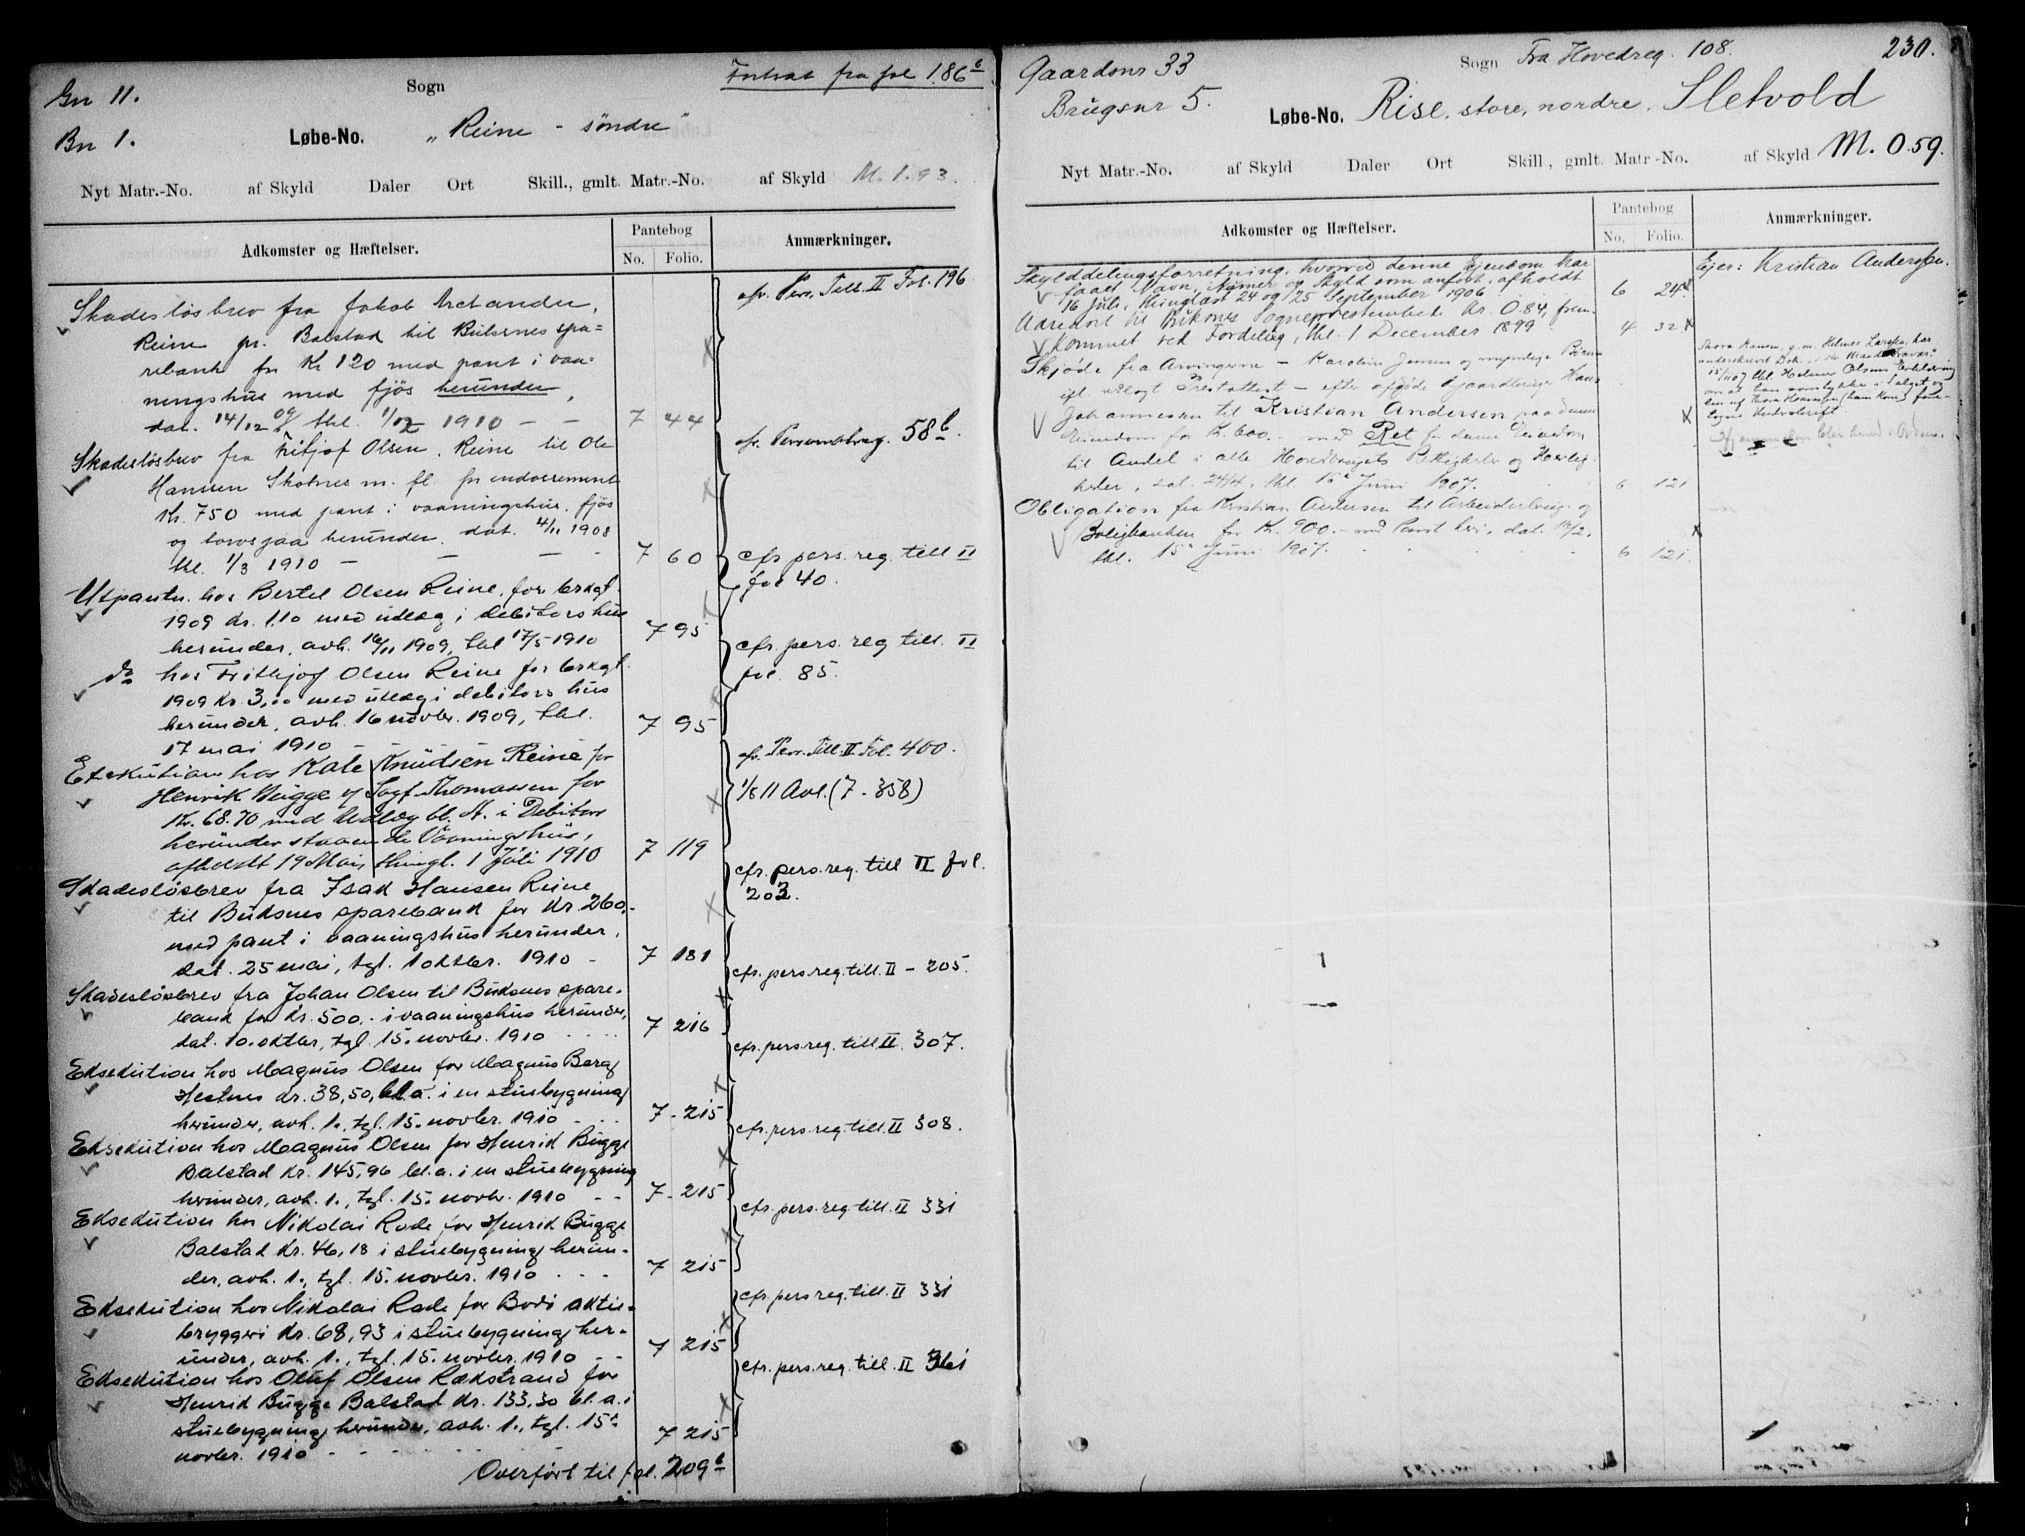 Gn 11.
Bn 1.
Sogn
Fortsat fra fol 186b
Løbe-No. "Reine - søndre"
Nyt Matr.-No. af Skyld Daler Ort Skill., gmlt. Matr.-No. af Skyld M. 1.93.
Adkomster og Hæftelser.
Pantebog
No. Folio.
Anmærkninger.
Skadesløsbrev fra Jakob
Reine pr. Balstad til Buksnes spa=
rebank for Kr 120 med pant i vaa=
ningshus med fjös herunder,
dat. 14/12 09 thl. 1/2 1910 - - 7 44
cfr. Pers. Till. II Fol. 196
Skadesløsbrev fra Fritjof Olsen, Reine til Ole
Hansen Skotnes m. fl. for endossement
Kr. 750 med pant i vaaningshus, fjös
og herunder, dat. 4/11 1908
thl. 1/3 1910 - - - 7 60
cfr. Personalreg. 58b.
Utpantn. hos Bertel Olsen Reine, for brkgt.
1909 Kr. 1.10 med utlæg i debitors hus
herunder, avh. 16/11 1909, thl 17/5 1910 7 95
cfr pers. reg. till II
fol 40.
do hos Frithjof Olsen Reine for brkgt.
1909 Kr. 3,00 med utlæg i debitors hus
herunder, avh. 16 novbr. 1909, thl.
17 mai 1910 - 7 95
cfr pers. reg till. II
fol. 85.
Exekution hos Kate Knudsen Reine for
Henrik Bugge og Sagf. Thomassen for
Kr. 68.70 med Udlæg bl. A. i Debitors
herunder staaende Vaaningshus,
afholdt 19 Mai, thingl. 1 Juli 1910 7 119
cfr. Pers. Till. II Fol. 400.
1/8 11 Avl. (7-358)
Skadesløsbrev fra Isak Hansen Reine
til Buksnes sparebank for Kr. 260,-
med pant i vaaningshus herunder,
dat. 25 mai, tgl. 1 oktbr. 1910 - 7 181
cfr. pers. reg. till II fol.
203.
Skadesløsbrev fra Johan Olsen til Buksnes spare-
bank for Kr. 500,- i vaaningshus herunder,
dat. 10. oktbr, tgl. 15. novbr. 1910 7 216
cfr. pers. reg. till. II - 205.
Eksekution hos Magnus Olsen for Magnus Berg
Hestnes Kr. 38,50, bl a. i en stuebygning
herunder, avh. 1., tgl. 15. novbr. 1910 7 - 215
cfr. pers. reg. till II. 307.
Eksekution hos Magnus Olsen for Henrik Bugge
Balstad Kr. 145,96 bl. a. i en stuebygning
herunder, avh. 1., tgl. 15. novbr. 1910 - - 7 - 215
cfr. pers. reg. till II 308.
Eksekution hos Nikolai Rode for Henrik Bugge
Balstad Kr. 46,18 i stuebygning herun-
der, avh. 1., tgl. 15. novbr. 1910 7 215
cfr. pers. reg. till. II 331
Eksekution hos Nikolai Rode for Bodö aktie-
bryggeri Kr. 68,93 i stuebygning her-
under, avh. 1., tgl. 15. novbr. 1910 7 215
cfr. pers reg. till. II 331
Eksekution hos Oluf Olsen Rækstrand for
Henrik Bugge Balstad Kr. 133,30 bl. a. i
stuebygning herunder, avh. 1., tgl. 15de
novbr. 1910 7 215
cfr. pers. reg. till. II 361
Overført til fol. 209b
Gaardsnr 33
Brugsnr 5.
Sogn Fra Hovedreg. 108.
230.
Løbe-No. Rise, store, nordre, Sletvold
Nyt Matr.-No. af Skyld Daler Ort Skill, gmlt. Matr-No. af Skyld M. 0.59.
Adkomster og Hæftelser.
Pantebog
No. Folio.
Anmærkninger.
Skylddelingsforretning, hvorved denne Ejendom har
faaet Navn, Numer og Skyld som anført, afholdt
16 Juli, thinglæst 24 og 25 September 1906 6 24
Ejer: Kristian Andersen.
til Buksnes Sogneprestembede Kr. 0.84, frem-
kommet ved Fordeling, thl. 1 December 1899 4 32
Skjøde fra Arvingerne - Karoline Jensen og
ifl. Prestattest - efter Hans
Johannesen til Kristian Andersen paa denne
Eiendom for Kr. 600.- med Ret for denne Eiendom
til Andel i alle Hovedbrugets Rettigheter og Herlig-
heder, dat. 24/4, thl. 15de Juni 1907. 6 121
Thora Hansen, g. m. Helmer Larsen, har
underskrevet
15/1 07 thl. Helmer Olsens Erklæring
om at han samtykker i Salget og
Thora Hansen (hans Kone)
Underskrift
Obligation fra Kristian Andersen til Arbeiderbrug- og
Boligbanken for Kr. 900.- med Pant heri, dat. 16/2,
thl. 15de Juni 1907. 6 121.